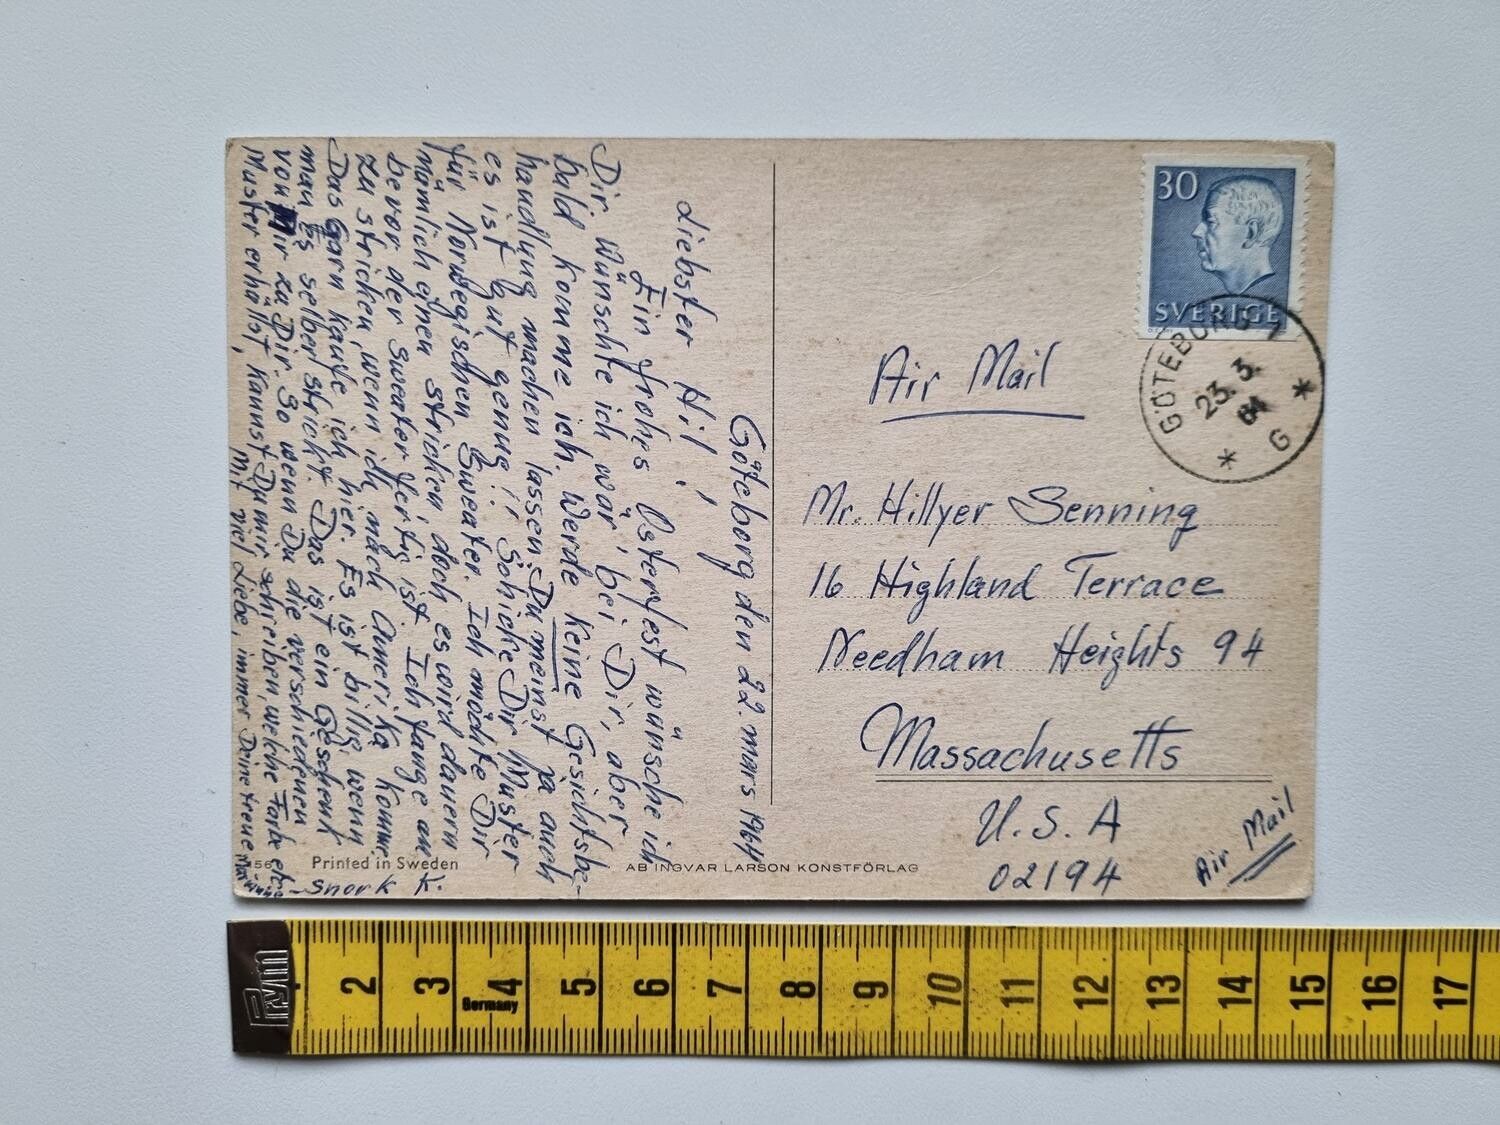 Göteborg den 22. mars 1964
Liebster Hil,
Ein frohes Osterfest wünsche ich
Dir. Wünschte ich wär' bei Dir, aber
bald komme ich. Werde keine Gesichtsbe-
handlung machen lassen. Du meinst ja auch
es ist gut genug!! Schicke Dir Muster
für Norwegischen Sweater. Ich möchte Dir
nämlich einen stricken, doch es wird dauern
bevor der Sweater fertig ist. Ich fange an
zu stricken, wenn ich nach Amerika komme.
Das Garn kaufe ich hier. Es ist billig wenn
man es selber strickt. Das ist ein Geschenk
von Mir zu Dir. So wenn Du die verschiedenen
Muster erhälst, kannst Du mir schreiben, welche Farbe etc.
Mit viel Liebe, immer Deine treue
Snork K.
56
Printed in Sweden
AB INGVAR LARSON KONSTFÖRLAG
30
SVERIGE
GÖTEBORG 1
23. 3. 64
G
Air Mail
Mr. Hillyer Senning
16 Highland Terrace
Needham Heights 94
Massachusetts
U. S. A
02194
Air Mail
Prym
2 3 4 5 6 7 8 9 10 11 12 13 14 15 16 17
Germany